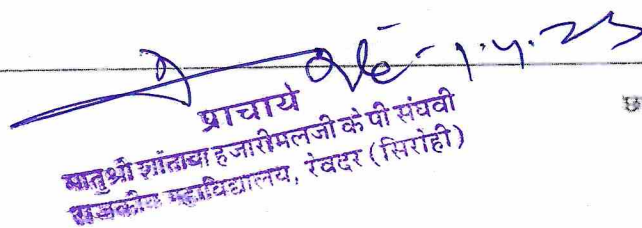 1.4.25
प्राचार्य
मातुश्री शांताबा हजारीमलजी के पी संघवी
राजकीय महाविद्यालय, रेवदर (सिरोही)